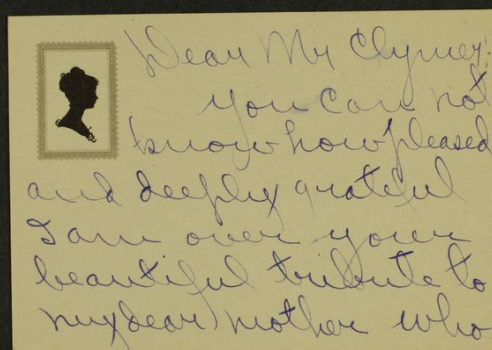 Dear Mr Clymer:
you can not
know how pleased
and deeply grateful
I am over your
beautiful tribute to
my dear mother who